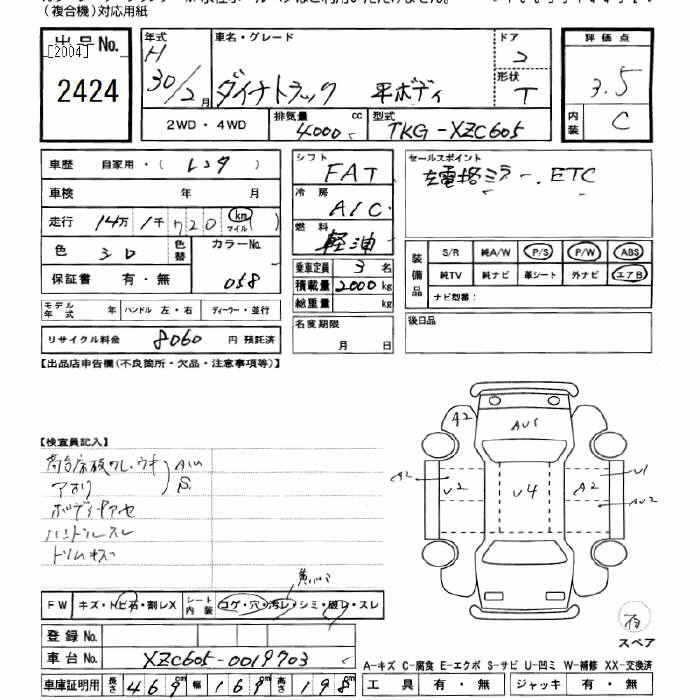 (複合機)対応用紙
出品No.
[2004]
2424
年式 H 30/2月
車名・グレード ダイナトラック 平ボディ
ドア 2
形状 T
2WD・4WD
排気量 4000 cc
型式 TKG-XZC605
評価点 3.5
内装 C
車歴 自家用・( レンタ )
車検 年 月
走行 14万 1千 720 km マイル
色 シロ 色替 カラーNo. 058
保証書 有・無
モデル年式 年 ハンドル 左・右 ディーラー・並行
リサイクル料金 8060 円 預託済
シフト FAT
冷房 A/C
燃料 軽油
乗車定員 3 名
積載量 2000 kg
総重量 kg
名変期限 月 日
セールスポイント
左電格ミラー. ETC
装備品 S/R 純A/W P/S P/W ABS
純TV 純ナビ 革シート 外ナビ エアB
ナビ型番:
後日品
【出品店申告欄(不良箇所・欠品・注意事項等)】
【検査員記入】
荷台床破れ.ウキ
アオリ
AW
S.
ボディヤケ
ハンドルスレ
ドリムキズ
A2
AU1
A2
U2
U4
A2
U1
AU2
FW キズ・トビ石・割レX
シート内装 コゲ・穴・汚レ・シミ・破レ・スレ
登録No.
車台No. XZC605-0019703
車庫証明用 長さ 469cm 幅 169cm 高さ 198cm
スペア
A-キズ C-腐食 E-エクボ S-サビ U-凹ミ W-補修 XX-交換済
工具 有・無 ジャッキ 有・無